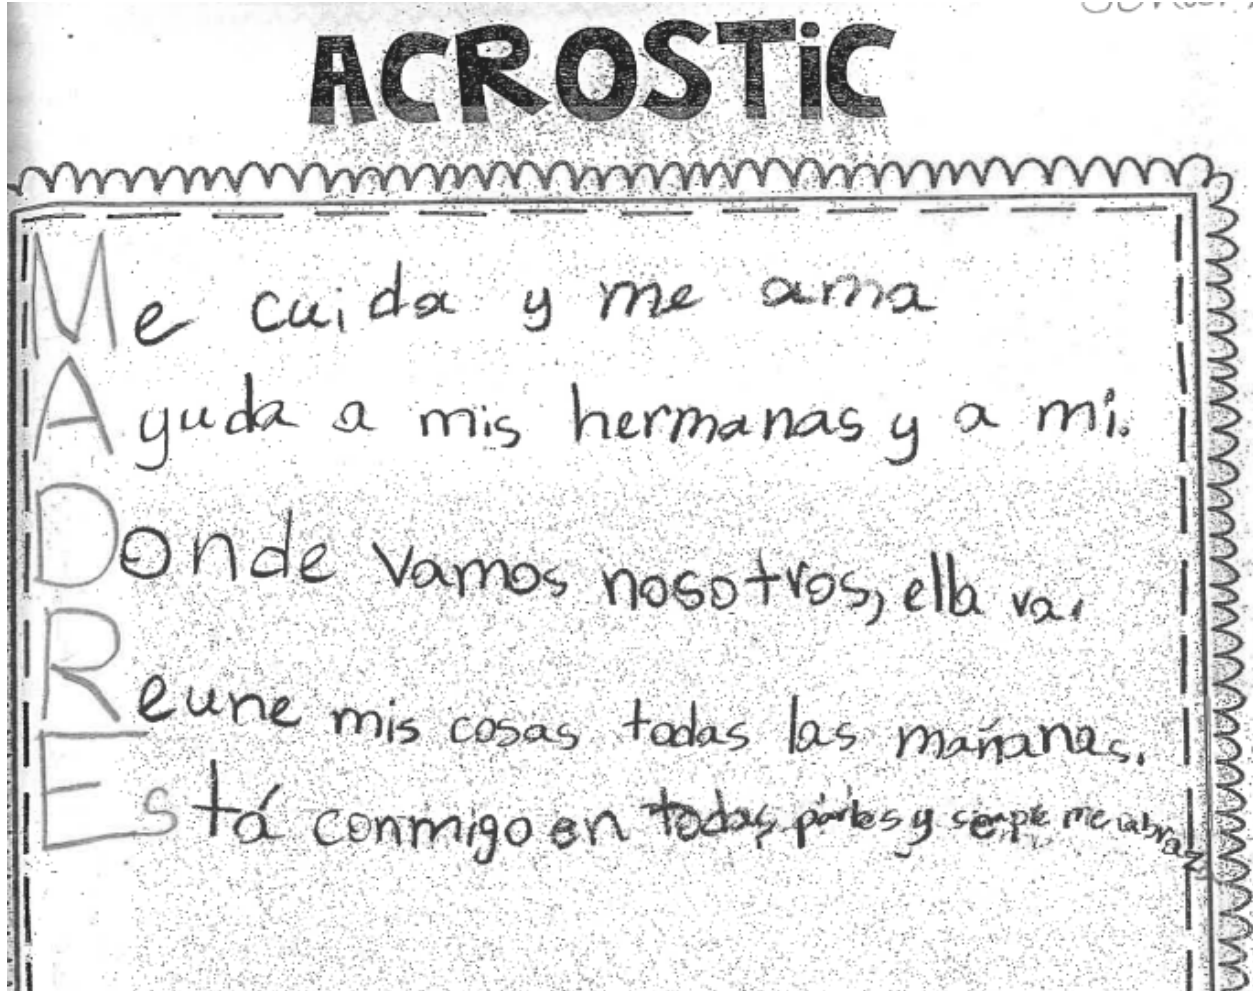 ACROSTiC
Me cuida y me ama
Ayuda a mis hermanas y a mi.
Donde vamos nosotros, ella va.
Reune mis cosas todas las mañanas.
Está conmigo en todas partes y siempre me abraz